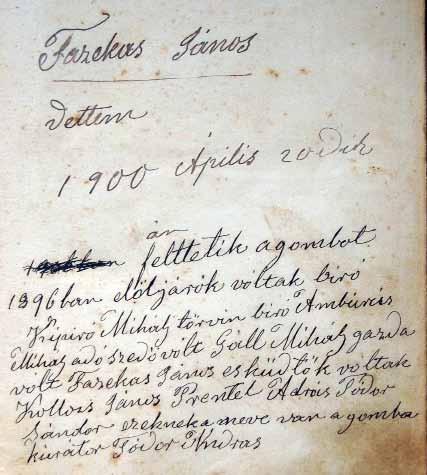 Fazekas János
vettem
1900 Ápilis 20dik
án
felttetik agombot
1896ban elöljárók voltak biró
Kipiró Mihály törvin biró Ambúrús
Mihály adoszedö volt Gáll Mihály gazda
volt Fazekas János esküdtök voltak
Kolloss János Prentel Adrás Tódor
Sándor ezeknek a meve van a gomba
kurátor Tódor Andras